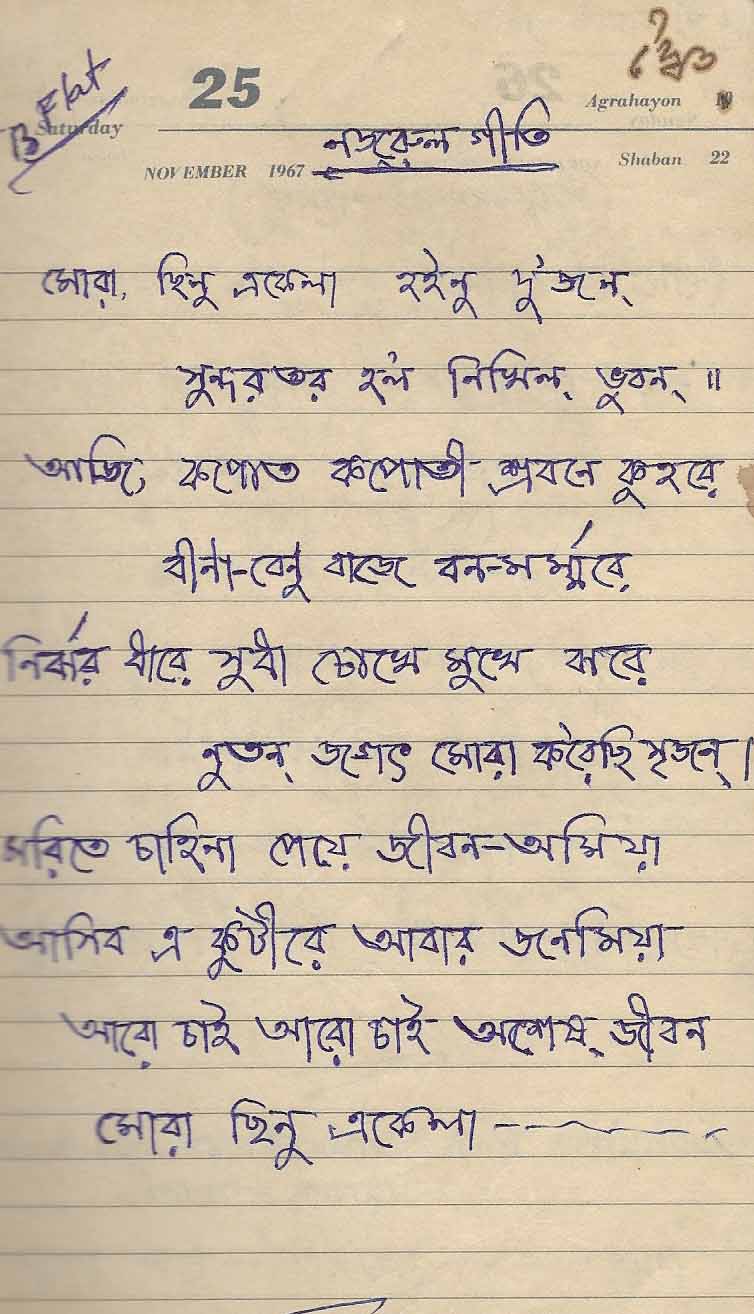 B Flat
25
Saturday
NOVEMBER 1967
Agrahayon
Shaban 22
নজরুল গীতি
মোরা, ছিনু একেলা হইনু দু'জন্
সুন্দরতর হ'ল নিখিল্ ভুবন্ ॥
আজি, কপোত কপোতী শ্রবনে কুহরে
বীনা-বেনু বাজে বন-মর্ম্মরে
নির্ঝর ধারে সুধা চোখে মুখে ঝরে
নুতন্ জগৎ মোরা করেছি সৃজন্।
মরিতে চাহিনা পেয়ে জীবন-অমিয়া
আসিব এ কুটীরে আবার জনমিয়া
আরো চাই আরো চাই অশেষ্ জীবন
মোরা ছিনু একেলা -----